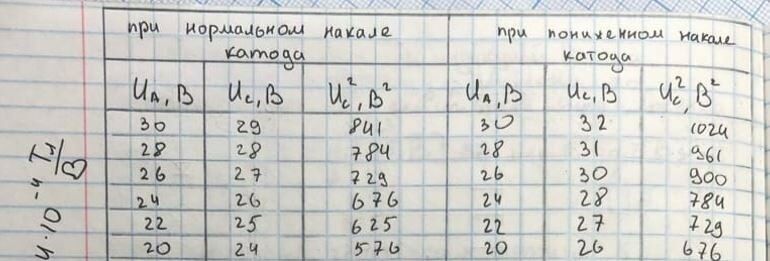 при нормальном накале катода при пониженном накале катода
U_A, В U_c, В U_c², В² U_A, В U_c, В U_c², В²
30 29 841 30 32 1024
28 28 784 28 31 961
26 27 729 26 30 900
24 26 676 24 28 784
22 25 625 22 27 729
20 24 576 20 26 676
4·10⁻⁴ Тл/В